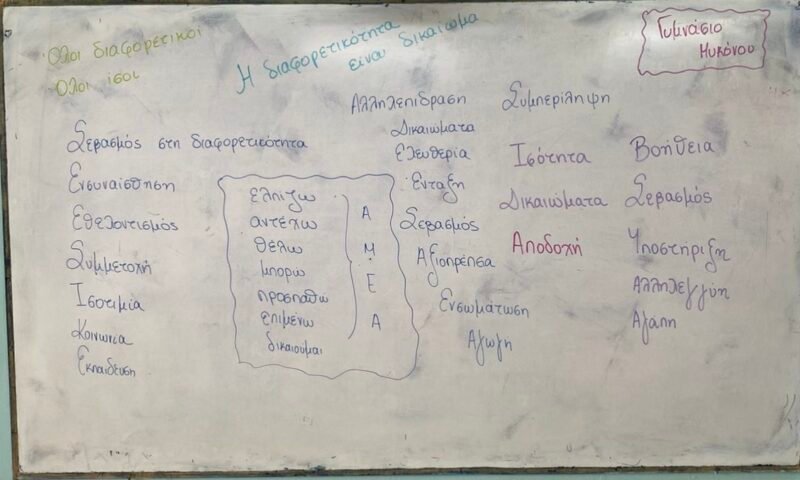 Όλοι διαφορετικοί
Όλοι ίσοι
Η διαφορετικότητα
είναι δικαίωμα
Γυμνάσιο
Μυκόνου
Σεβασμός στη διαφορετικότητα
Ενσυναίσθηση
Εθελοντισμός
Συμμετοχή
Ισοτιμία
Κοινωνία
Εκπαίδευση
ελπίζω
αντέχω
θέλω
μπορώ
προσπαθώ
επιμένω
δικαιούμαι
Α
Μ.
Ε
Α
Αλληλεπίδραση
Δικαιώματα
Ελευθερία
Ένταξη
Σεβασμός
Αξιοπρέπεια
Ενσωμάτωση
Αγωγή
Συμπερίληψη
Ισότητα
Δικαιώματα
Αποδοχή
Βοήθεια
Σεβασμός
Υποστήριξη
Αλληλεγγύη
Αγάπη